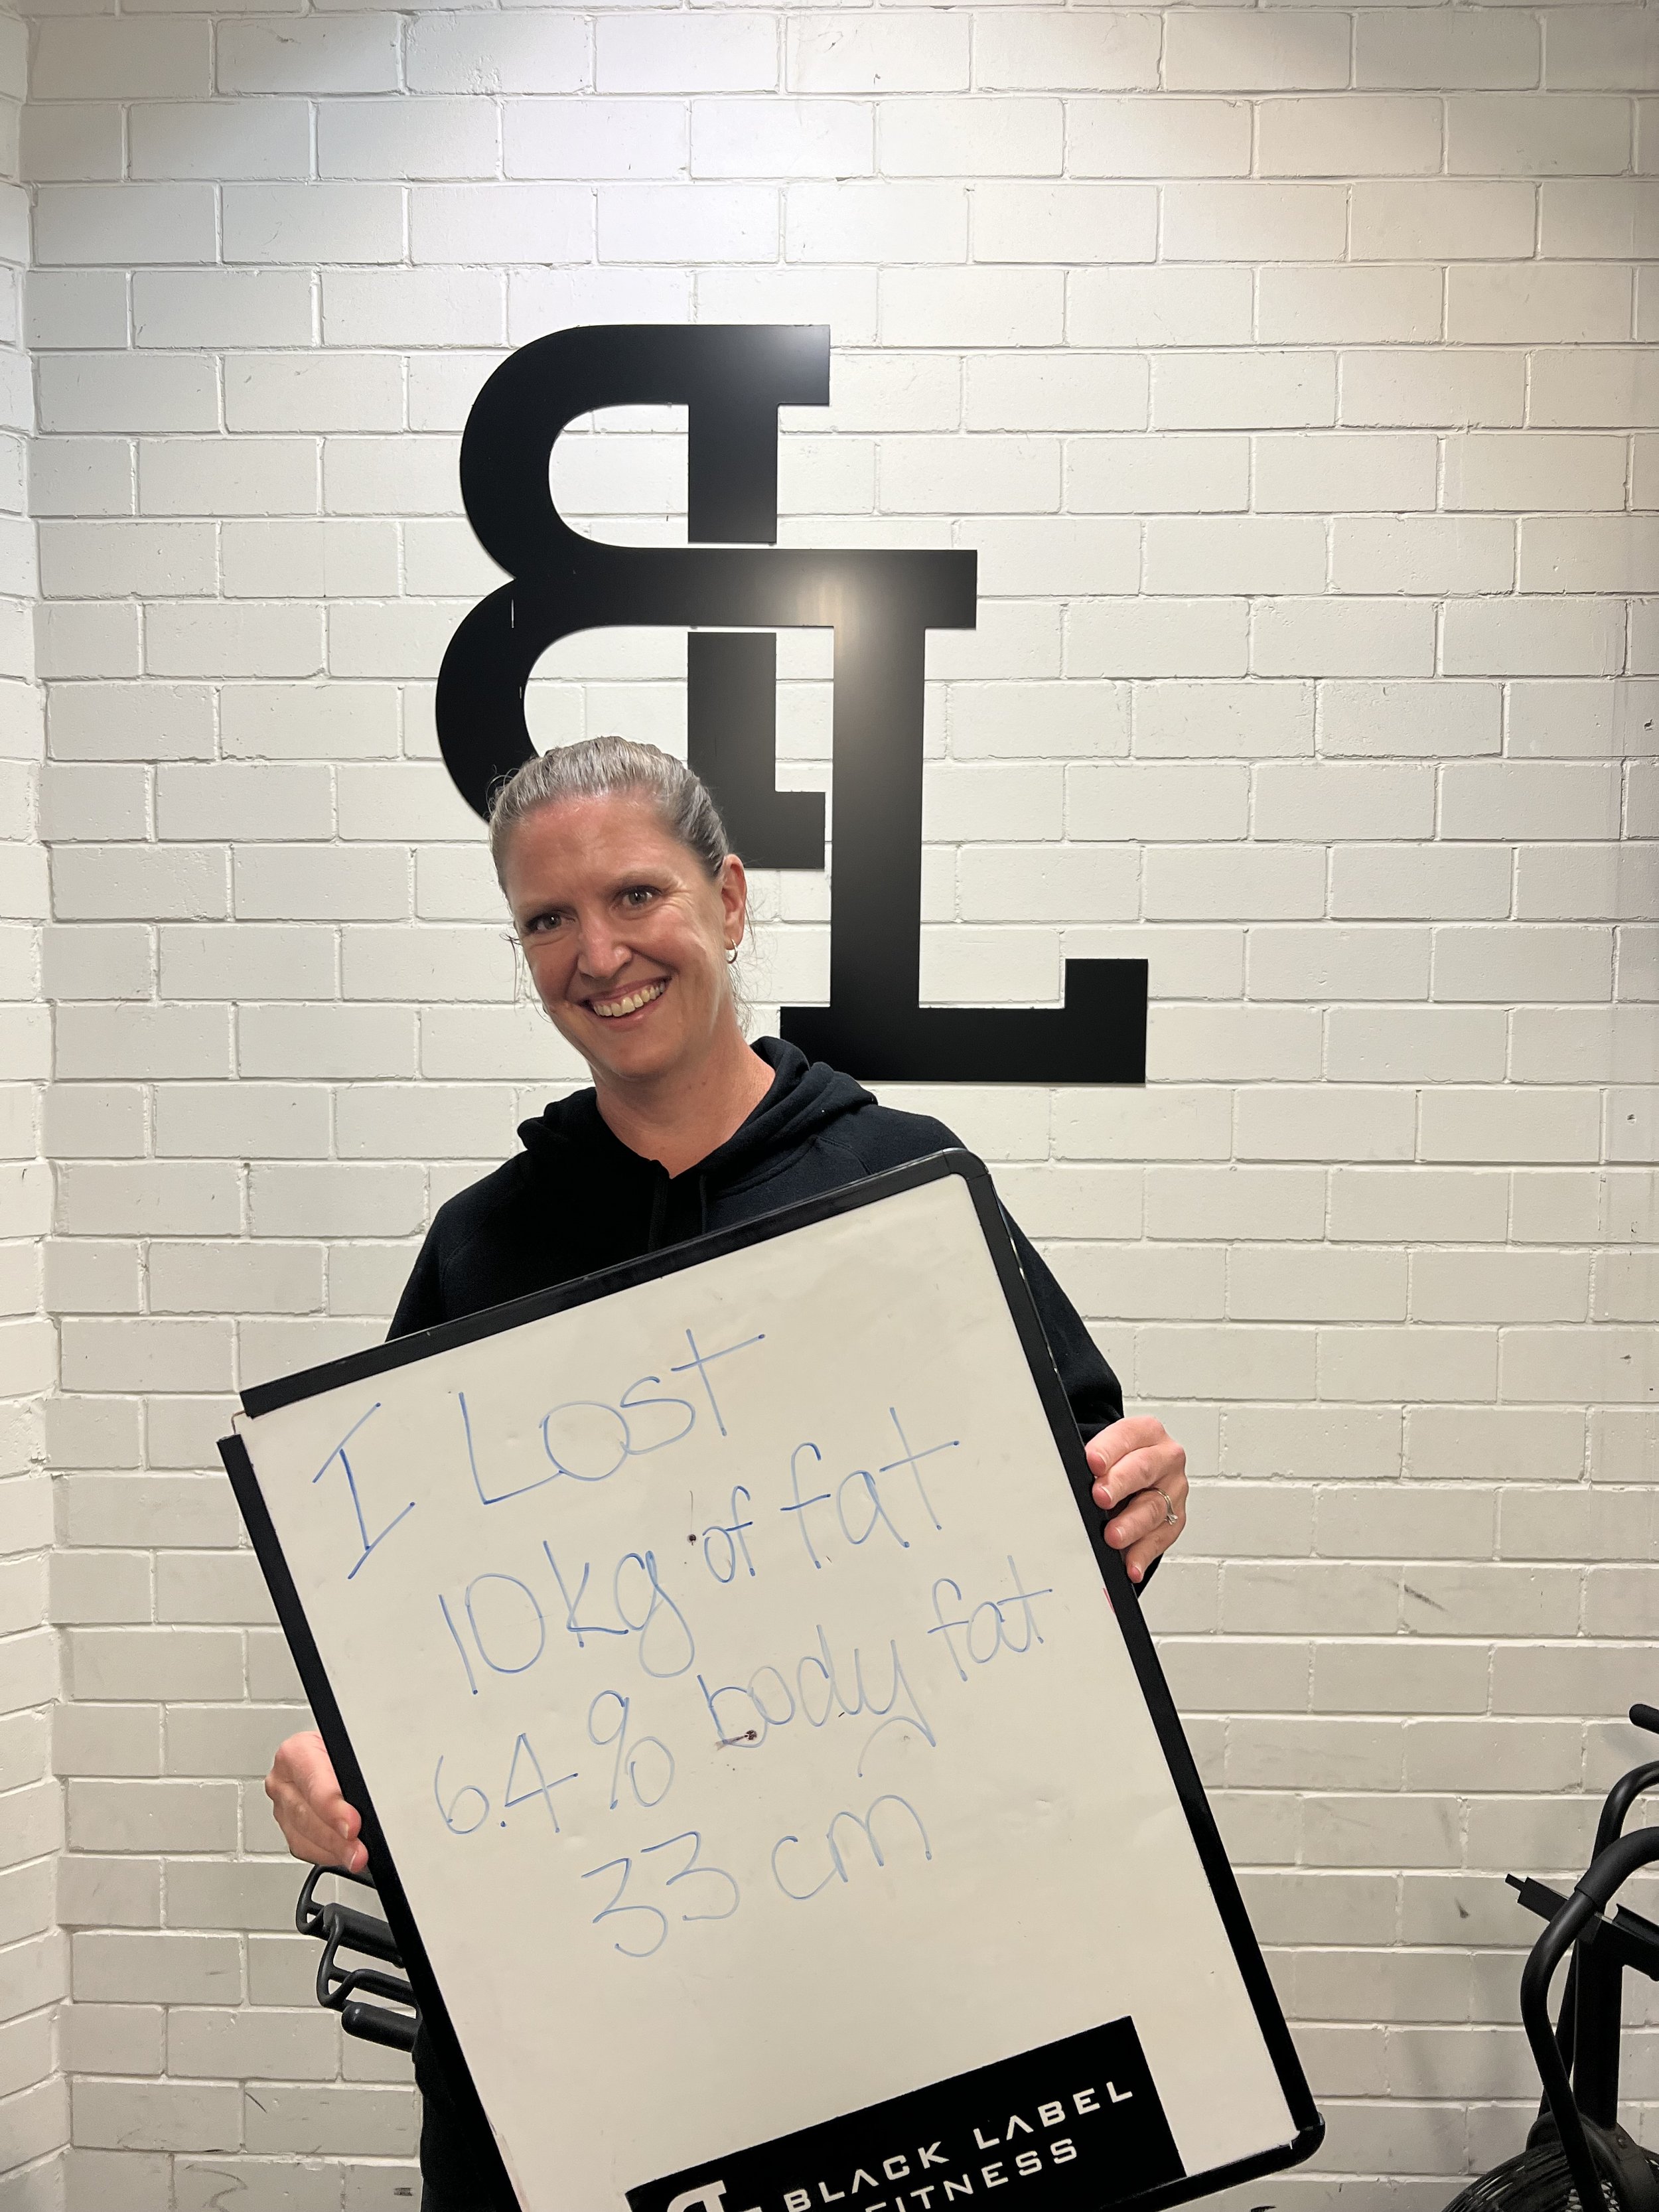 BL
I Lost
10kg of fat
6.4% body fat
33 cm
BL BLACK LABEL
FITNESS